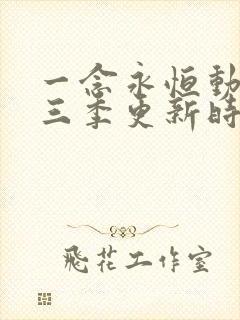 一念永恒動
三季更新時
飛花工作室